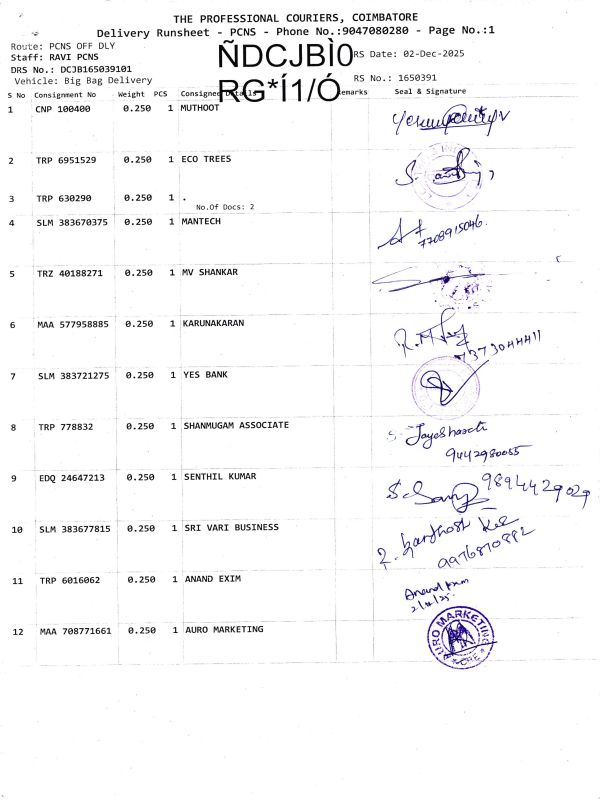 THE PROFESSIONAL COURIERS, COIMBATORE
Delivery Runsheet - PCNS - Phone No.:9047080280 - Page No.:1
Route: PCNS OFF DLY
Staff Name: RAVI PCNS
RS Date: 02-Dec-2025
DRS No.: DCJB165039101
Vehicle: Big Bag Delivery
RS No.: 1650391
ÑDCJBÌ0
RG*Í1/Ó
S No Consignment No Weight PCS Consignee Details Remarks Seal & Signature
1 CNP 100400 0.250 1 MUTHOOT
2 TRP 6951529 0.250 1 ECO TREES
3 TRP 630290 0.250 1 .
No.Of Docs: 2
4 SLM 383670375 0.250 1 MANTECH
7708915046
5 TRZ 40188271 0.250 1 MV SHANKAR
6 MAA 577958885 0.250 1 KARUNAKARAN
7373044411
7 SLM 383721275 0.250 1 YES BANK
8 TRP 778832 0.250 1 SHANMUGAM ASSOCIATE
9442980055
9 EDQ 24647213 0.250 1 SENTHIL KUMAR
9894429029
10 SLM 383677815 0.250 1 SRI VARI BUSINESS
9976870892
11 TRP 6016062 0.250 1 ANAND EXIM
12 MAA 708771661 0.250 1 AURO MARKETING
AURO MARKETING